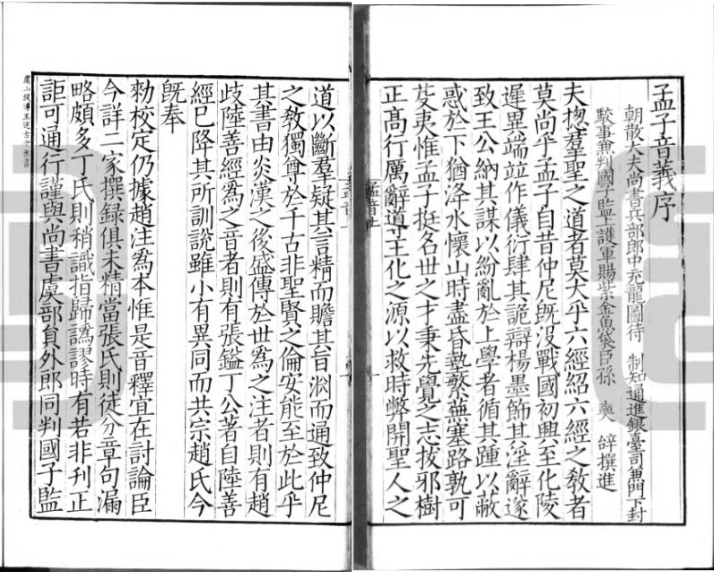 孟子音義序
朝散大夫尚書兵部郎中充龍圖待制知通進銀臺司兼門下封
駮事兼判國子監上護軍賜紫金魚袋臣孫奭等撰進
夫揔羣聖之道者莫大乎六經紹六經之教者
莫尚乎孟子自昔仲尼旣沒戰國初興至化陵
遲異端並作儀衍肆其詭辯楊墨飾其淫辭遂
致王公納其謀以紛亂於上學者循其踵以蔽
惑於下猶洚水懷山時盡昏墊繁蕪塞路孰可
芟夷惟孟子挺名世之才秉先覺之志拔邪樹
正髙行厲辭導王化之源以救時弊開聖人之
道以斷羣疑其言精而贍其旨淵而通致仲尼
之教獨尊於千古非聖賢之倫安能至於此乎
其書由炎漢之後盛傳於世爲之注者則有趙
歧陸善經爲之音者則有張鎰丁公著自陸善
經已降其所訓說雖小有異同而共宗趙氏今
旣奉
勑校定仍據趙注爲本惟是音釋宜在討論臣
今詳二家撰録俱未精當張氏則徒分章句漏
略頗多丁氏則稍識指歸譌謬時有若非刋正
詎可通行謹與尚書虞部貟外郎同判國子監